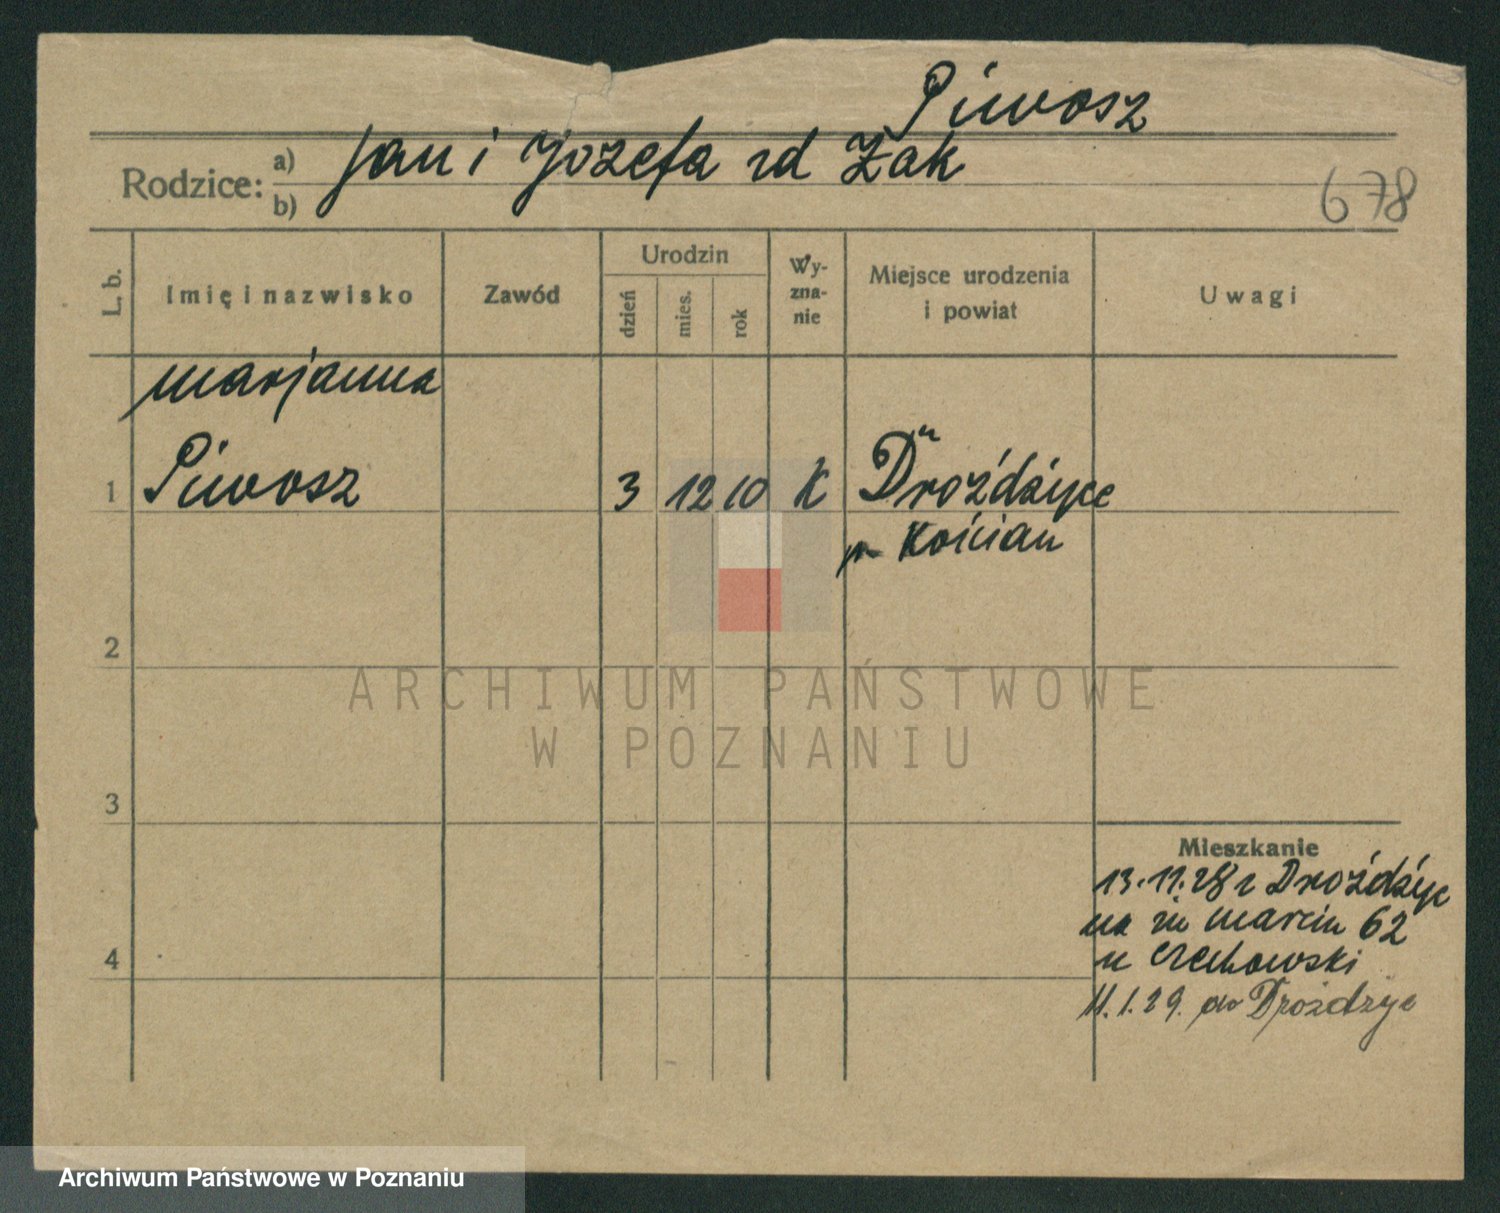 Piwosz
Rodzice: a) Jan i Jozefa rd Żak
b)
678
L. b.
Imię i nazwisko
Zawód
Urodzin
dzień
mies.
rok
Wy-
zna-
nie
Miejsce urodzenia
i powiat
Uwagi
Marjanna
1 Piwosz 3 12 10 K Drożdżyce
p. Kościan
2
3
4
Mieszkanie
13.11.28 z Drożdżyc
na św Marcin 62
u Czechowski
11.1.29. do Drożdzyc
ARCHIWUM PAŃSTWOWE
W POZNANIU
Archiwum Państwowe w Poznaniu